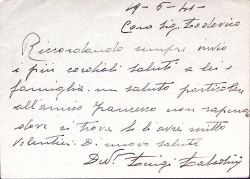 29-5-41-
Caro Sig. Lodovico
Riccordando sempre invio
i più cordiali saluti a lei e
famiglia. un saluto particolare
all'amico Francesco non sapendo
dove si trova le
volentieri. Di nuovo saluti
Luigi